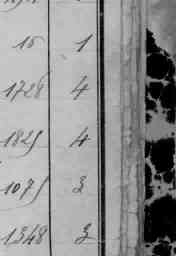 16 1
1728 4
1825 4
1075 3
1348 3